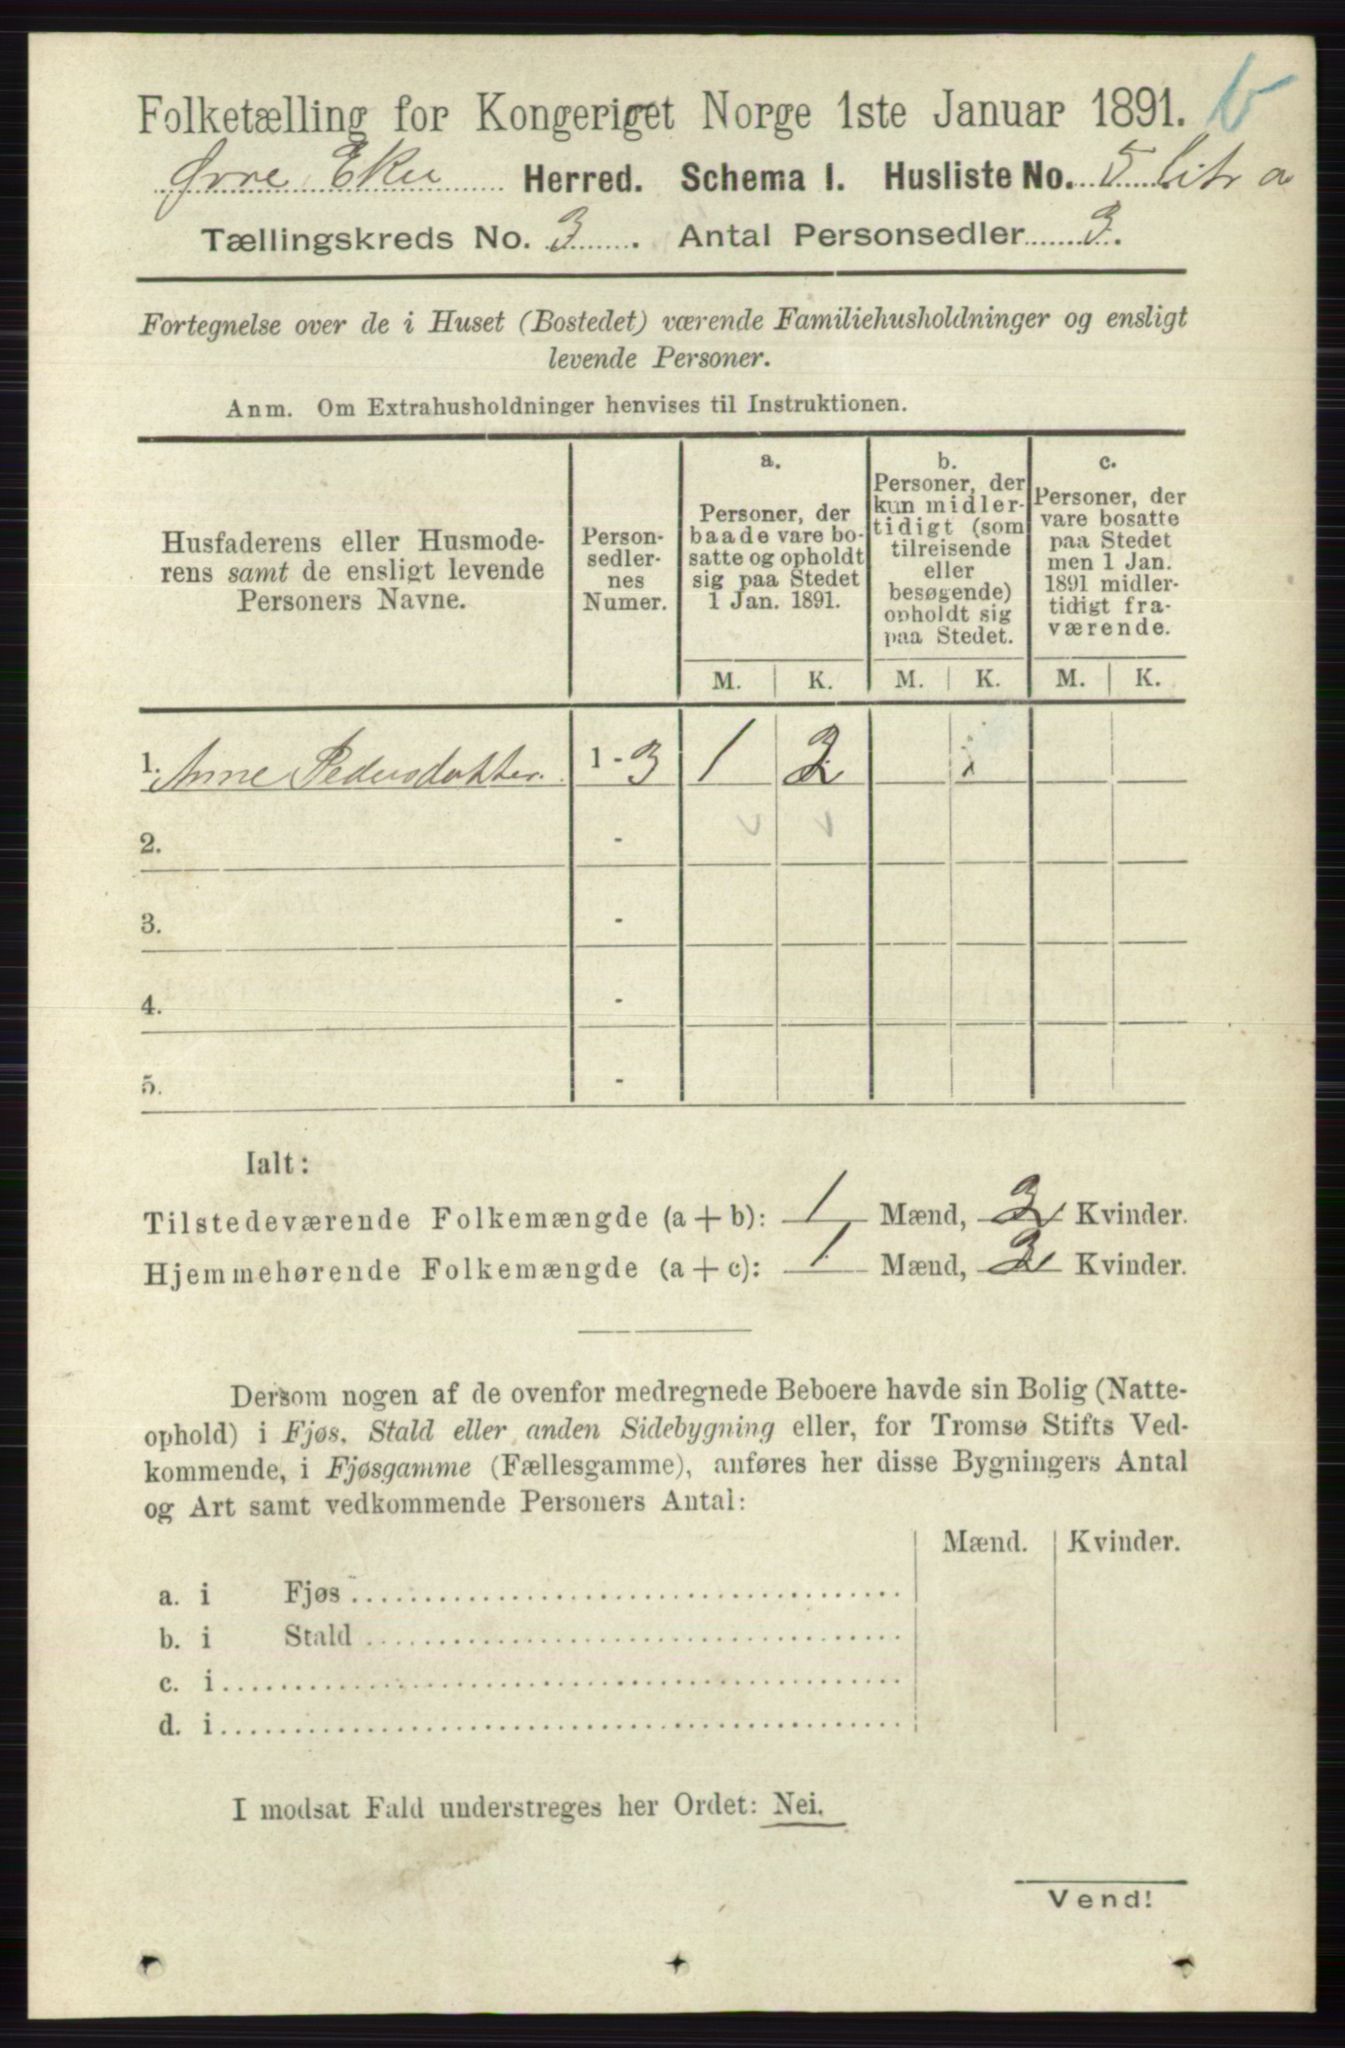 Folketælling for Kongeriget Norge 1ste Januar 1891.
Øvre Eker Herred. Schema I. Husliste No. 5 litr a
Tællingskreds No. 3. Antal Personsedler 3.
Fortegnelse over de i Huset (Bostedet) værende Familiehusholdninger og ensligt
levende Personer.
Anm. Om Extrahusholdninger henvises til Instruktionen.
Husfaderens eller Husmode-
rens samt de ensligt levende
Personers Navne.
Person-
sedler-
nes
Numer.
a.
Personer, der
baade vare bo-
satte og opholdt
sig paa Stedet
1 Jan. 1891.
b.
Personer, der
kun midler-
tidigt (som
tilreisende
eller
besøgende)
opholdt sig
paa Stedet.
c.
Personer, der
vare bosatte
paa Stedet
men 1 Jan.
1891 midler-
tidigt fra-
værende.
M. K. M. K. M. K.
1. Anne Pedersdatter. 1 - 3 1 2
2. -
3. -
4. -
5. -
Ialt:
Tilstedeværende Folkemængde (a + b): 1 Mænd, 2 Kvinder.
Hjemmehørende Folkemængde (a + c): 1 Mænd, 2 Kvinder.
Dersom nogen af de ovenfor medregnede Beboere havde sin Bolig (Natte-
ophold) i Fjøs, Stald eller anden Sidebygning eller, for Tromsø Stifts Ved-
kommende, i Fjøsgamme (Fællesgamme), anføres her disse Bygningers Antal
og Art samt vedkommende Personers Antal:
Mænd. Kvinder.
a. i Fjøs
b. i Stald
c. i
d. i
I modsat Fald understreges her Ordet: Nei.
Vend!